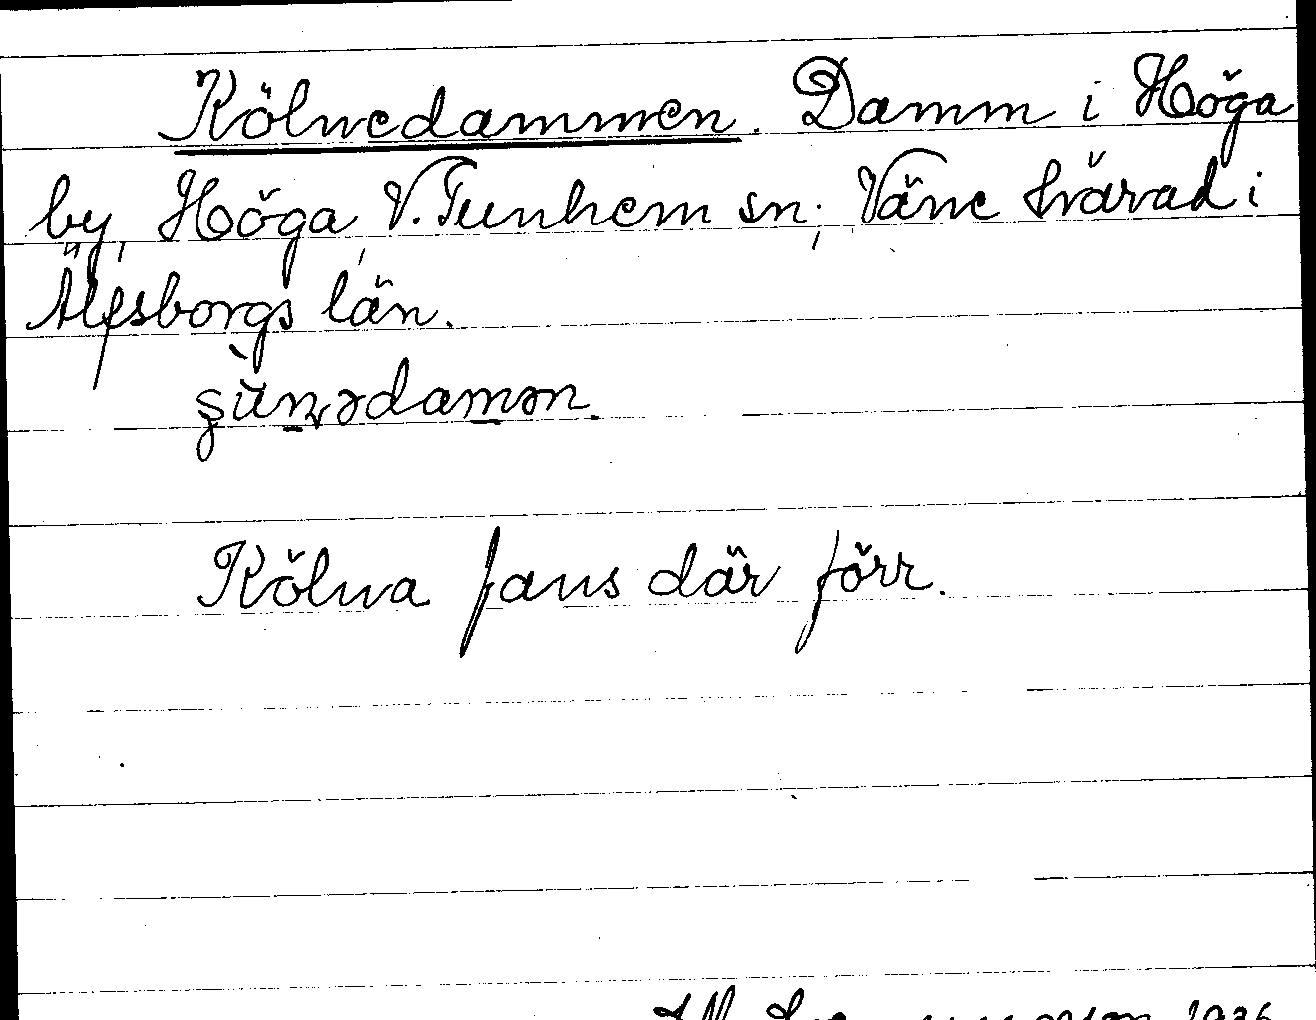 Kölnedammen. Damm i Höga
by, Höga, V. Tunhem sn; Väne härad i
Älfsborgs län.
Kölna fans där förr.
1936